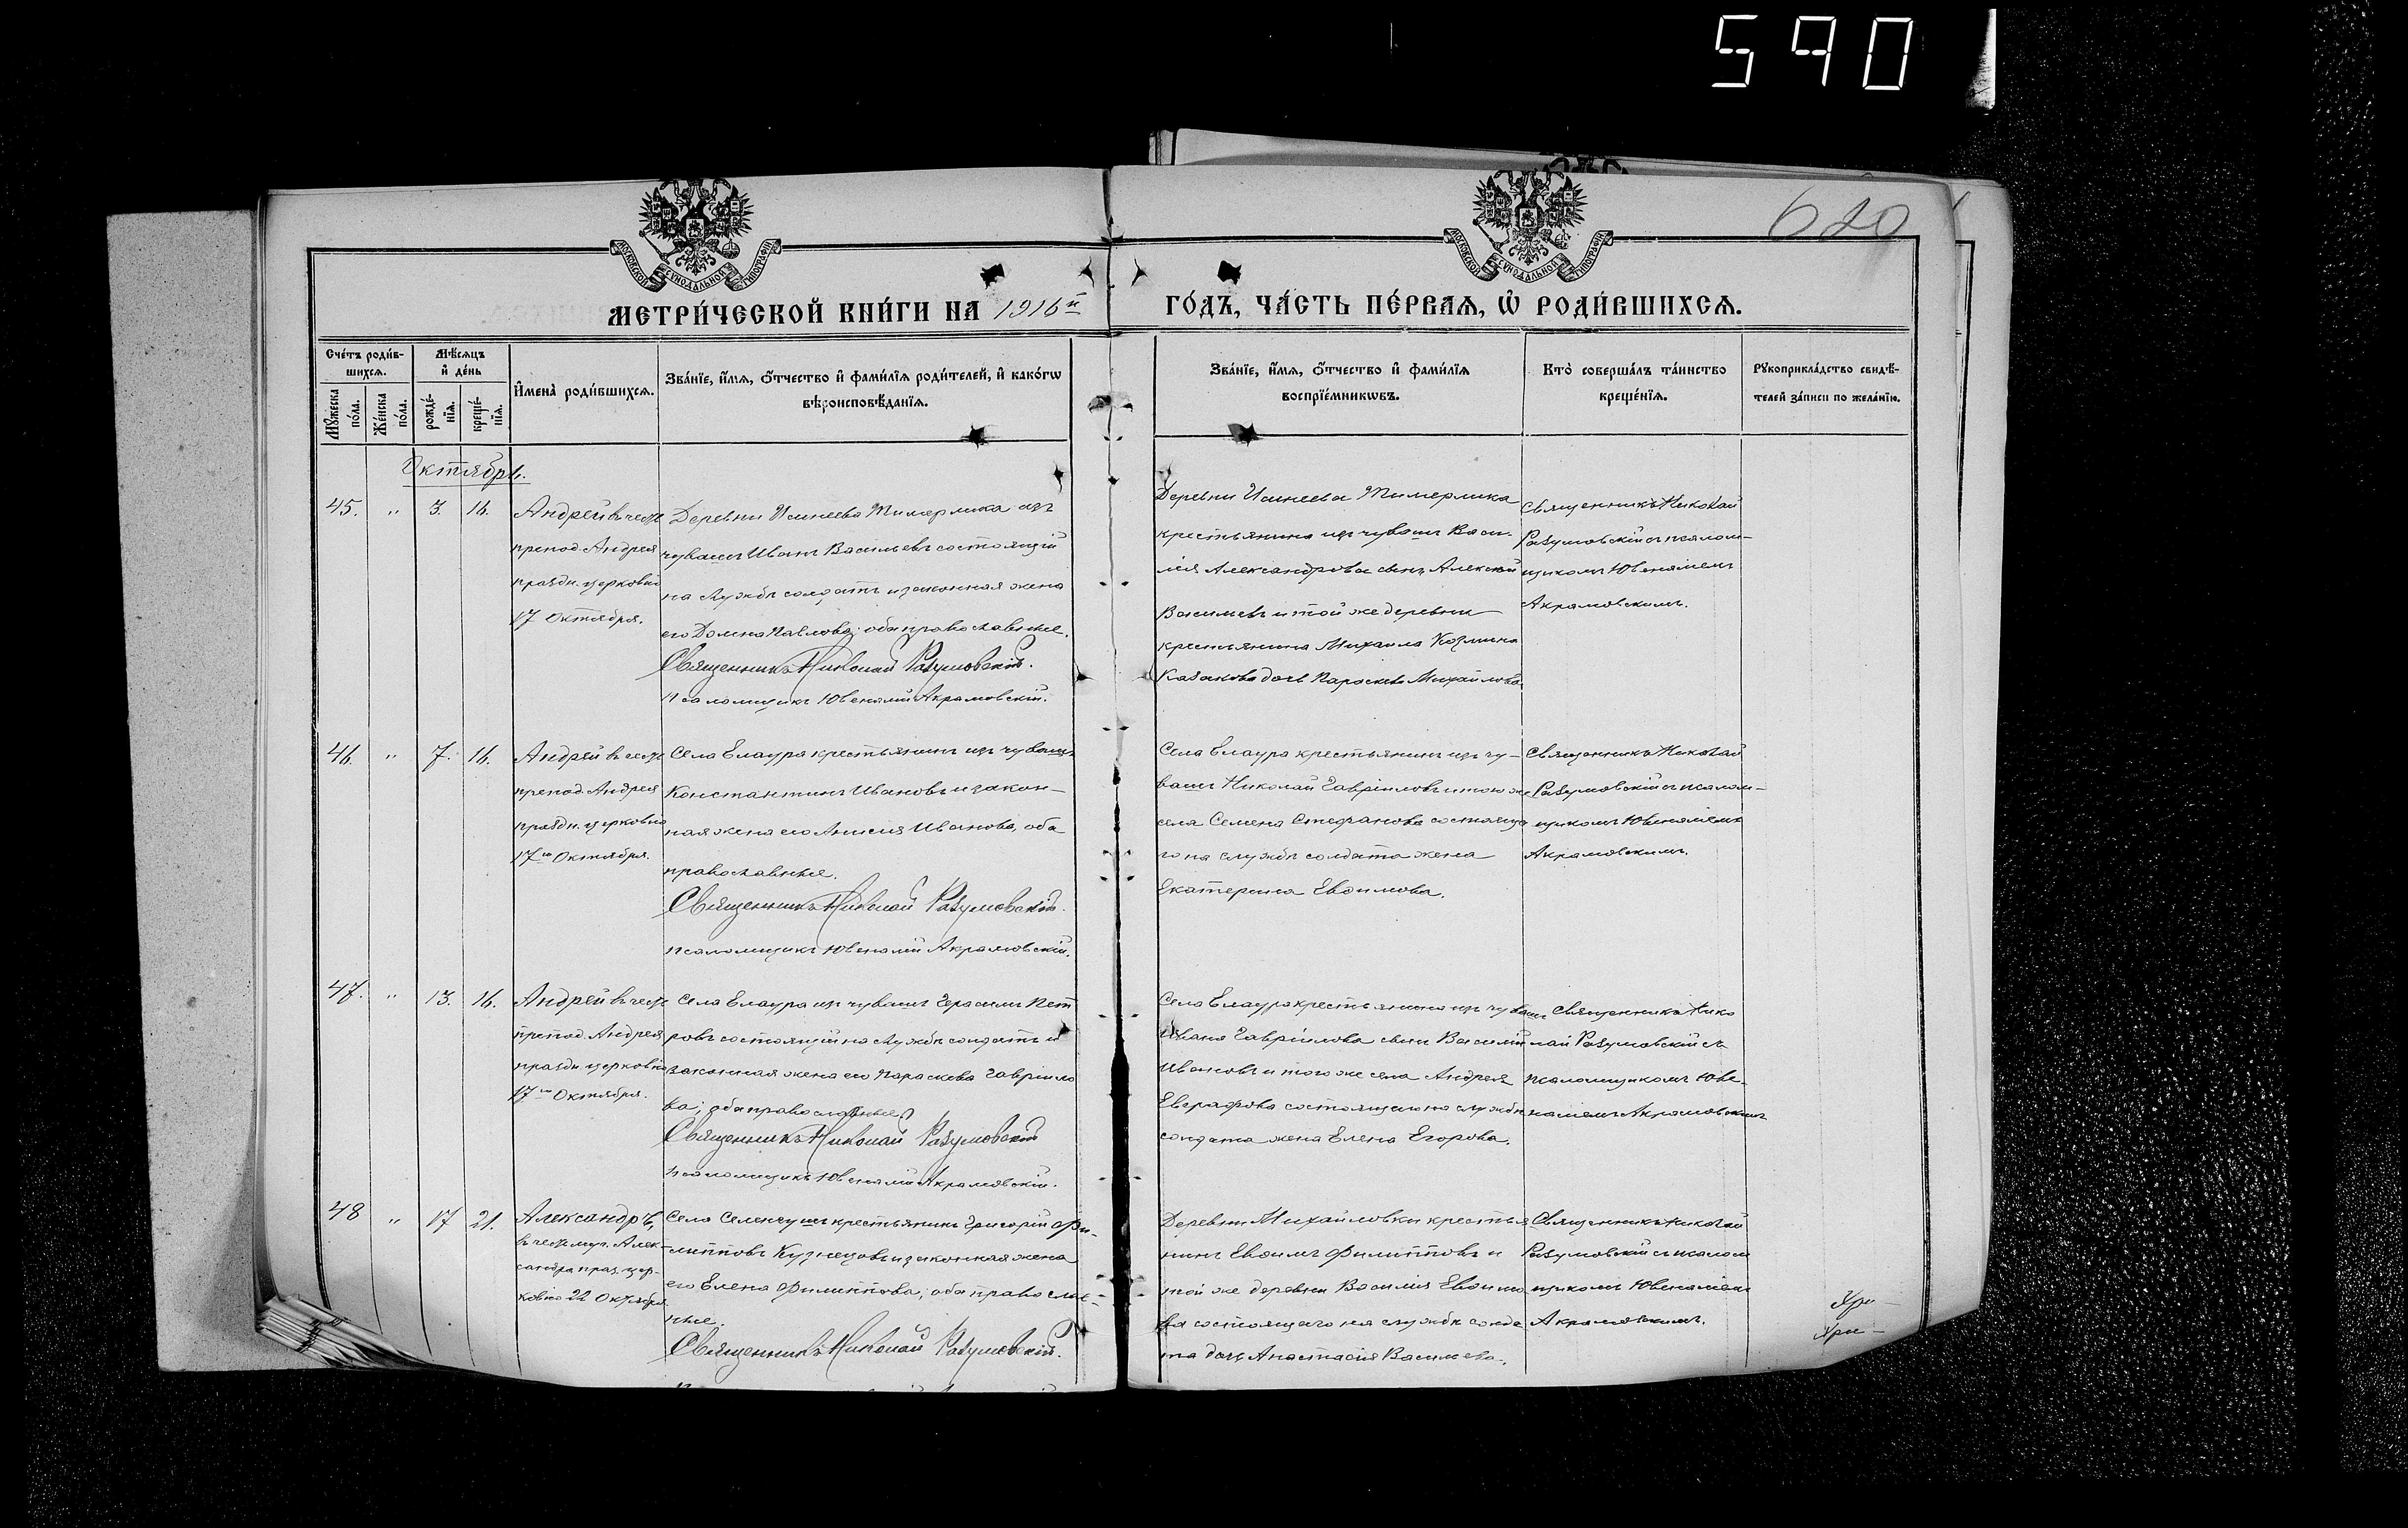 590
620
МОСКОВСКОЙ СѴНОДАЛЬНОЙ ТИПОГРАФІИ
МОСКОВСКОЙ СѴНОДАЛЬНОЙ ТИПОГРАФІИ
МЕТРИ́ЧЕСКОЙ КНИ́ГИ НА 1916й
ГО́ДЪ, ЧА́СТЬ ПЕ́РВАѦ, Ѽ РОДИ́ВШИХСѦ.
Сче́тъ роди́в-
шихсѧ.
Мꙋ́жеска по́ла.
Же́нска по́ла.
Мѣ́сѧцъ
и҆ де́нь
рожде́-
нїѧ.
креще́-
нїѧ.
И҆мена̀ роди́вшихсѧ.
Зва́нїе, и҆́мѧ, ѻ҆́тчество и҆ фами́лїѧ роди́телей, и҆ како́гѡ
вѣроисповѣ́данїѧ.
Зва́нїе, и҆́мѧ, ѻ҆́тчество и҆ фами́лїѧ
воспрїе́мникѡвъ.
Кто̀ соверша́лъ та́инство
креще́нїѧ.
Рꙋкоприкла́дство свидѣ́-
телей за́писи по жела́нїю.
Октябрь.
45. " 3. 16.
Андрей въ честь
препод. Андрея
праздн. церковью
17 Октября.
Деревни Исинеева Тимерлика изъ
чувашъ Иванъ Васильевъ состоящій
на службѣ солдатъ и законная жена
его Домна Павлова; оба православные.
Священникъ Николай Разумовскій.
Псаломщикъ Ювеналій Акрамовскій.
Деревни Исинеева Тимерлика
крестьянина изъ чувашъ Васи-
лія Александрова сынъ Алексѣй
Васильевъ и той же деревни
крестьянина Михаила Козмина
Казакова дочь Параскева Михайлова
Священникъ Николай
Разумовскій съ псалом-
щикомъ Ювеналіемъ
Акрамовскимъ.
46. " 7. 16.
Андрей въ честь
препод. Андрея
праздн. церковью
17го Октября.
Села Елаура крестьянинъ изъ чувашъ
Константинъ Ивановъ и закон-
ная жена его Анисія Иванова, оба
православные.
Священникъ Николай Разумовскій.
Псаломщикъ Ювеналій Акрамовскій.
Села Елаура крестьянинъ изъ чу-
вашъ Николай Гавріиловъ и того же
села Семена Стефанова состояща
го на службѣ солдата жена
Екатерина Евѳимова.
Священникъ Николай
Разумовскій съ псалом-
щикомъ Ювеналіемъ
Акрамовскимъ.
47. " 13. 16.
Андрей въ честь
препод. Андрея
праздн. церковью
17го Октября.
Села Елаура изъ чувашъ Герасимъ Пет
ровъ состоящій на службѣ солдатъ и
законная жена его Параскева Гавріило
ва; оба православные.
Священникъ Николай Разумовскій
Псаломщикъ Ювеналій Акрамовскій.
Села Елаура крестьянина изъ чувашъ
Ивана Гавріилова сынъ Василій
Ивановъ и того же села Андрея
Евграфова состоящаго на службѣ
солдата жена Елена Егорова.
Священникъ Нико
лай Разумовскій съ
псаломщикомъ Юве-
наліемъ Акрамовскимъ
48 " 17 21.
Александръ,
въ честь муч. Алек-
сандра праз. цер-
ковью 22 Октября.
Села Селенгушъ крестьянинъ Григорій Фи-
липповъ Кузнецовъ и законная жена
его Елена Филиппова; оба православ-
ные.
Священникъ Николай Разумовскій.
Деревни Михайловки крестья
нинъ Евѳимъ Филипповъ и
той же деревни Василія Евѳимо
ва состоящаго на службѣ солда
та дочь Анастасія Васильева.
Священникъ Николай
Разумовскій съ псалом
щикомъ Ювеналіемъ
Акрамовскимъ.